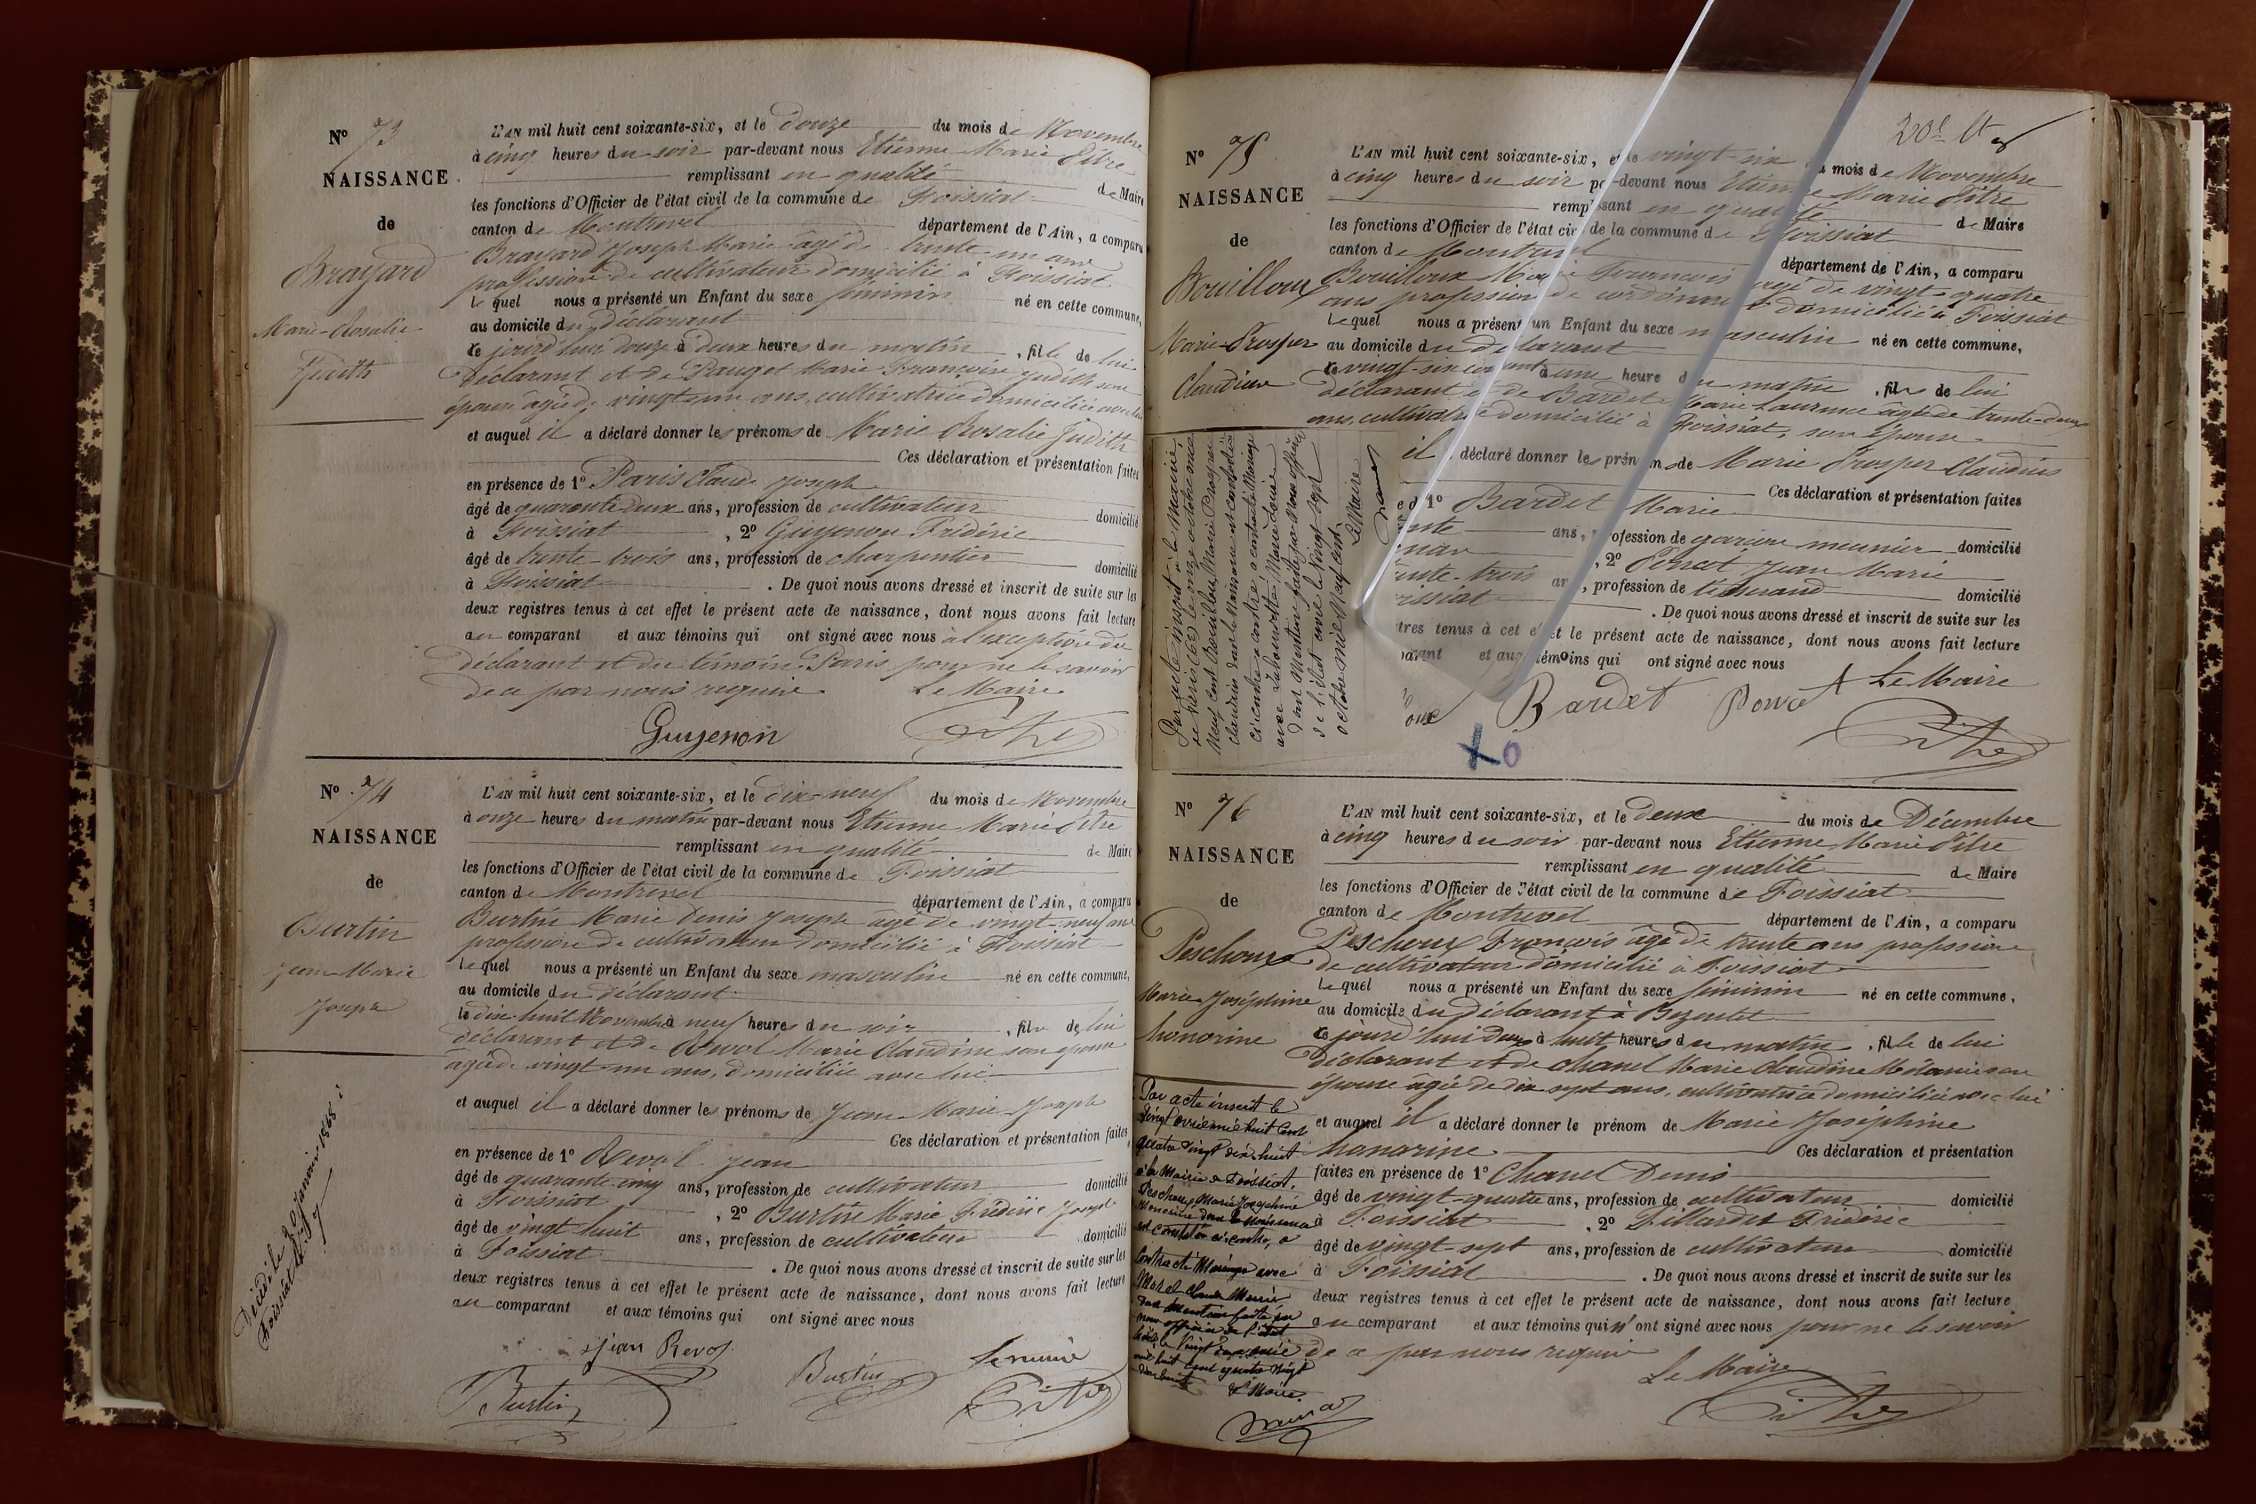 N° 73
NAISSANCE
de
Brayard
Marie-Rosalie
Judith
L'AN mil huit cent soixante-six, et le douze du mois de Novembre
à cinq heures du soir par-devant nous Etienne Marie Pitre
remplissant en qualité de Maire
les fonctions d'Officier de l'état civil de la commune de Foissiat
canton de Montrevel département de l'Ain, a comparu
Brayard Joseph Marie âgé de trente-un ans
profession de cultivateur domicilié à Foissiat
lequel nous a présenté un Enfant du sexe féminin né en cette commune,
au domicile du déclarant
ce jourd'hui douze à deux heures du matin, fille de lui
déclarant et de Pauget Marie Françoise Judith son
épouse âgée de vingt-un ans, cultivatrice domiciliée avec lui
et auquel il a déclaré donner les prénoms de Marie Rosalie Judith
Ces déclaration et présentation faites
en présence de 1° Paris Claude Joseph
âgé de quarante deux ans, profession de cultivateur domicilié
à Foissiat, 2° Guyenon Frédéric
âgé de trente-trois ans, profession de charpentier domicilié
à Foissiat. De quoi nous avons dressé et inscrit de suite sur les
deux registres tenus à cet effet le présent acte de naissance, dont nous avons fait lecture
au comparant et aux témoins qui ont signé avec nous à l'exception du
déclarant et du témoin Paris pour ne le savoir
de ce par nous requis. Le Maire
Guyenon Pitre
N° 74
NAISSANCE
de
Burtin
Jean-Marie
Joseph
Décédé le 20 janvier 1868 à
Foissiat
L'AN mil huit cent soixante-six, et le dix-neuf du mois de Novembre
à onze heures du matin par-devant nous Etienne Marie Pitre
remplissant en qualité de Maire
les fonctions d'Officier de l'état civil de la commune de Foissiat
canton de Montrevel département de l'Ain, a comparu
Burtin Marie Denis Joseph âgé de vingt-neuf ans
profession de cultivateur domicilié à Foissiat
lequel nous a présenté un Enfant du sexe masculin né en cette commune,
au domicile du déclarant
le dix-huit Novembre à neuf heures du soir, fils de lui
déclarant et de Revol Marie Claudine son épouse
âgée de vingt-un ans, domiciliée avec lui
et auquel il a déclaré donner les prénoms de Jean-Marie Joseph
Ces déclaration et présentation faites
en présence de 1° Revol Jean
âgé de quarante-cinq ans, profession de cultivateur domicilié
à Foissiat, 2° Burtin Marie Frédéric Joseph
âgé de vingt huit ans, profession de cultivateur domicilié
à Foissiat. De quoi nous avons dressé et inscrit de suite sur les
deux registres tenus à cet effet le présent acte de naissance, dont nous avons fait lecture
au comparant et aux témoins qui ont signé avec nous
Jean Revol
Burtin Burtin Le maire
Pitre
N° 75
NAISSANCE
de
Bouilloux
Marie-Prosper
Claudius
L'AN mil huit cent soixante-six, et le vingt-six du mois de Novembre
à cinq heures du soir par-devant nous Etienne Marie Pitre
remplissant en qualité de Maire
les fonctions d'Officier de l'état civil de la commune de Foissiat
canton de Montrevel département de l'Ain, a comparu
Bouilloux Marie François âgé de vingt-quatre
ans profession de cordonnier domicilié à Foissiat
Lequel nous a présenté un Enfant du sexe masculin né en cette commune,
au domicile du déclarant
ce vingt-six courant à une heure du matin, fils de lui
déclarant et de Bardet Marie Laurence âgée de trente-deux
ans, cultivatrice domicilié à Foissiat, son épouse
il déclaré donner les prénoms de Marie Prosper Claudius
Ces déclaration et présentation faites
e d 1° Bardet Marie
ente ans, profession de garçon meunier domicilié
, 2° Perret Jean Marie
ente-trois ans, profession de tisserand domicilié
issiat. De quoi nous avons dressé et inscrit de suite sur les
tres tenus à cet effet le présent acte de naissance, dont nous avons fait lecture
parant et aux témoins qui ont signé avec nous
Le Maire
Bardet Pitre
Par acte inscrit à la mairie
de Paris le onze octobre mil
Neuf Cent Bouilloux Marie Prosper
Claudius dont la Naissance est constatée
ci contre a contracté Mariage
avec
Dont Mention faite par nous officier
de l'état civil le vingt sept
octobre mil Neuf Cent.
Le Maire
N° 76
NAISSANCE
de
Peschoux
Marie-Joséphine
honorine
L'AN mil huit cent soixante-six, et le deux du mois de Décembre
à cinq heures du soir par-devant nous Etienne Marie Pitre
remplissant en qualité de Maire
les fonctions d'Officier de l'état civil de la commune de Foissiat
canton de Montrevel département de l'Ain, a comparu
Peschoux François âgé de trente ans profession
de cultivateur domicilié à Foissiat
Lequel nous a présenté un Enfant du sexe féminin né en cette commune,
au domicile du déclarant à Bezentet
ce jourd'hui deux à huit heures du matin, fille de lui
déclarant et de Chanel Marie Claudine Mélanie son
épouse âgée de dix sept ans, cultivatrice domiciliée avec lui
et auquel il a déclaré donner le prénom de Marie Joséphine
honorine Ces déclaration et présentation
faites en présence de 1° Chanel Denis
âgé de vingt-quatre ans, profession de cultivateur domicilié
à Foissiat, 2° Pillardet Frédéric
âgé de vingt-sept ans, profession de cultivateur domicilié
à Foissiat. De quoi nous avons dressé et inscrit de suite sur les
deux registres tenus à cet effet le présent acte de naissance, dont nous avons fait lecture
au comparant et aux témoins qui n'ont signé avec nous pour ne le savoir
de ce par nous requis
Le Maire
Pitre
Par acte inscrit le
Vingt avril mil huit Cent
quatre vingt dix huit
à la Mairie de Foissiat,
Peschoux Marie Joséphine
Honorine dont la Naissance
est constatée ci contre, a
Contracté Mariage avec
Morel Claude Marie
Dont Mention faite par
nous officier de l'état
civil le Vingt
mil huit Cent quatre vingt
dix huit
Le Maire